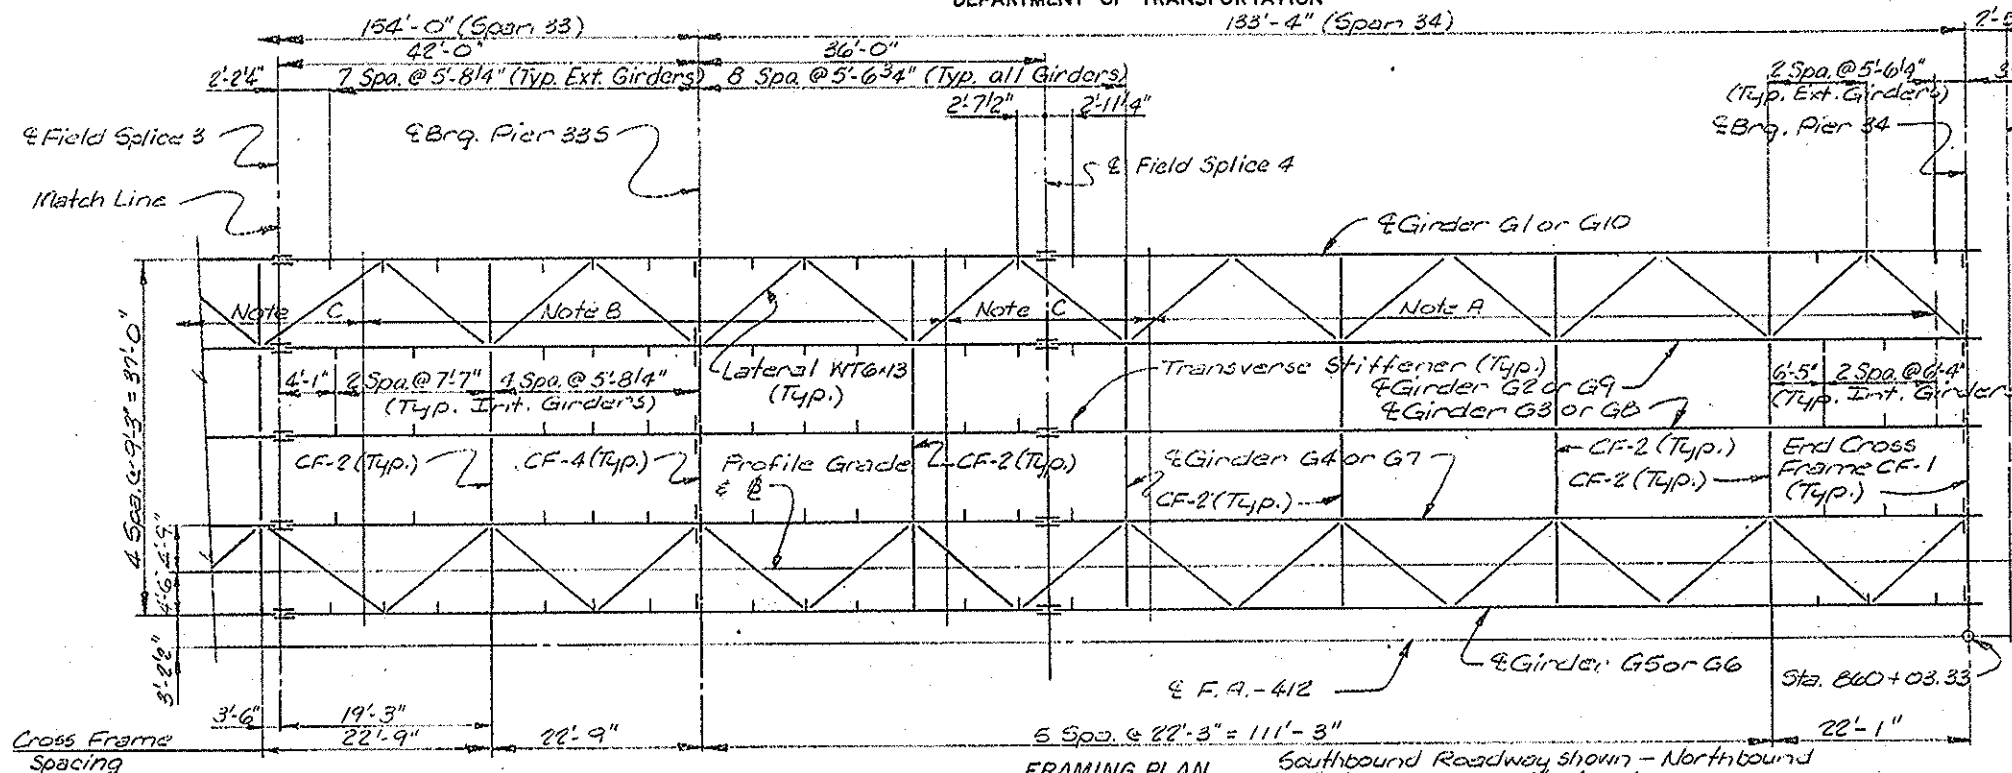 DEPARTMENT OF TRANSPORTATION
154'-0" (Span 33)
133'-4" (Span 34)
42'-0"
36'-0"
2'-2¼"
7 Spa. @ 5'-8¼" (Typ. Ext. Girders)
8 Spa. @ 5'-6¾" (Typ. all Girders)
2 Spa. @ 5'-6¼"
(Typ. Ext. Girders)
2'-7½"
2'-11¼"
℄ Field Splice 3
℄ Brg. Pier 33S
℄ Brg. Pier 34
℄ Field Splice 4
Match Line
℄ Girder G1 or G10
Note C
Note B
Note C
Note A
4 Spa. @ 9'-3" = 37'-0"
Lateral WT6×13
(Typ.)
Transverse Stiffener (Typ.)
℄ Girder G2 or G9
℄ Girder G3 or G8
4'-1"
2 Spa. @ 7'-7"
4 Spa. @ 5'-8¼"
(Typ. Int. Girders)
6'-5"
2 Spa. @ 6'-4"
(Typ. Int. Girders
CF-2 (Typ.)
CF-4 (Typ.)
Profile Grade
CF-2 (Typ.)
℄ Girder G4 or G7
CF-2 (Typ.)
CF-2 (Typ.)
CF-2 (Typ.)
End Cross
Frame CF-1
(Typ.)
4'-9"
4'-6"
3'-2½"
℄ Girder G5 or G6
℄ F.A.-412
Sta. 860+03.33
3'-6"
19'-3"
22'-9"
22'-9"
5 Spa. @ 22'-3" = 111'-3"
22'-1"
Cross Frame
Spacing
FRAMING PLAN
Southbound Roadway shown - Northbound